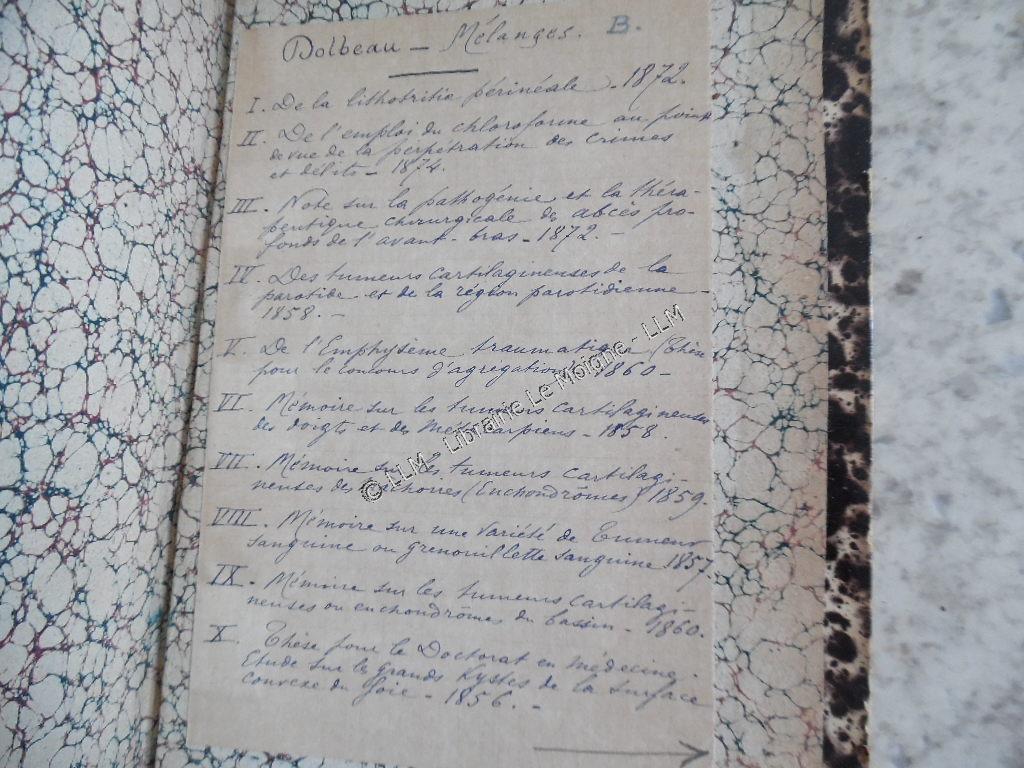 Dolbeau — Mélanges. B.
I. De la lithotritie périnéale. 1872.
II. De l'emploi du chloroforme au point
de vue de la perpétration des crimes
et délits - 1874.
III. Note sur la pathogénie et la théra-
peutique chirurgicale des abcès pro-
fonds de l'avant-bras - 1872. -
IV. Des tumeurs cartilagineuses de la
parotide et de la région parotidienne -
1858. -
V. De l'Emphysème traumatique (Thèse
pour le concours d'agregation) 1860 -
VI. Mémoire sur les tumeurs cartilagineuses
des doigts et des Metacarpiens - 1858.
VII. Mémoire sur les tumeurs cartilagi-
neuses des machoires (Enchondromes) 1859.
VIII. Mémoire sur une variété de Tumeur
sanguine ou grenouillette sanguine 1857.
IX. Mémoire sur les tumeurs cartilagi-
neuses ou enchondrômes du bassin - 1860.
X. Thèse pour le Doctorat en médecine -
Etude sur les grands kystes de la surface
convexe du foie - 1856. -
© LLM - Librairie Le Moigne - LLM